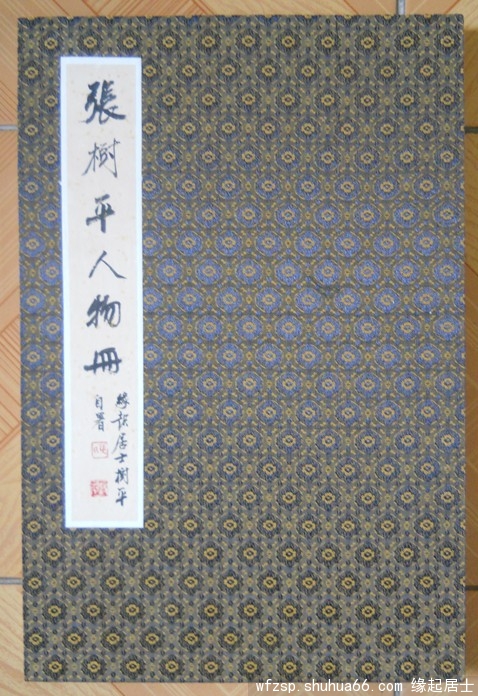 張樹平人物冊
緣起居士樹平
自署
wfzsp.shuhua66.com 缘起居士